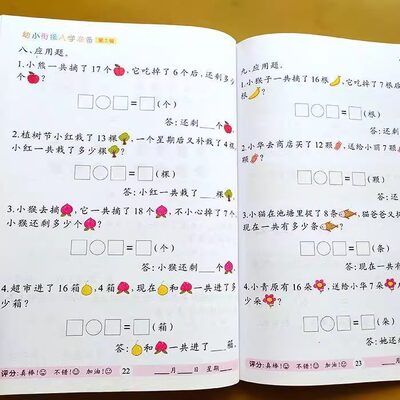 幼小衔接入学准备
八、应用题。
1.小熊一共摘了17个,它吃掉了6个后,还剩多少
个?
□○□=□(个)
答:还剩___个
2.植树节小红栽了13棵,一个星期后又补栽了4棵
小红一共栽了多少棵?
□○□=□(棵)
答:小红一共栽了___棵
3.小猴去摘,它一共摘了18个,不小心掉了7个
小猴还剩多少个?
□○□=□(个)
答:小猴还剩___个
4.超市进了16箱,4箱,现在和一共进了多
少箱?
□○□=□(箱)
答:和一共进了___箱
评分:真棒! 不错! 加油! 22 ___月___日 星期___
九、应用题。
1.小猴子一共摘了16根,它吃掉了7根后
还剩多少根?
□○□=□(根)
答:还剩
2.小华去商店买了12颗,送给小丽7颗
□○□=□(颗)
答:还
3.小猫在池塘里捉了8条,猫爸爸又捉
现在一共有多少条?
□○□=□(条)
答:现在一共有
4.小青原有16朵,送给小华7朵
少朵?
□○□=□(朵)
答:她还剩
评分:真棒! 不错! 加油! 23